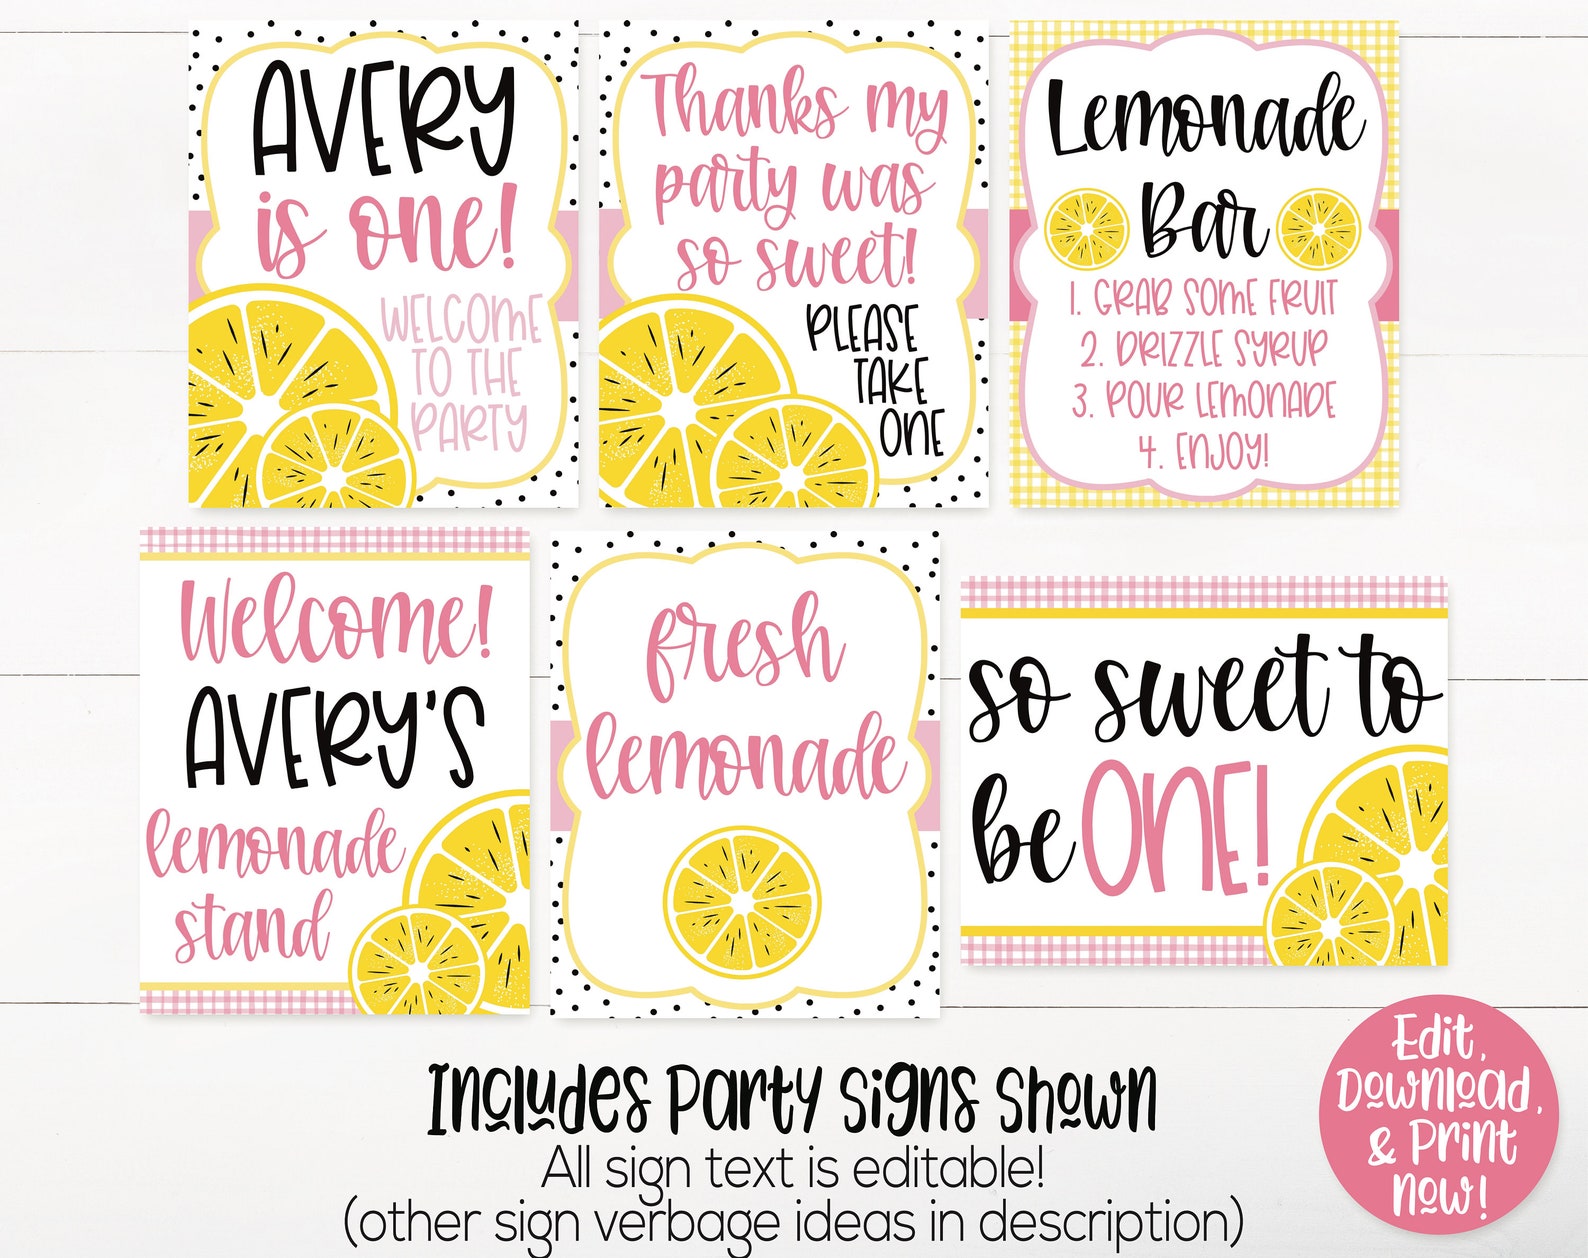 AVERY
is one!
WELCOME
TO THE
PARTY
Thanks my
party was
so sweet!
PLEASE
TAKE
ONE
Lemonade
Bar
1. GRAB SOME FRUIT
2. DRIZZLE SYRUP
3. POUR LEMONADE
4. ENJOY!
Welcome!
AVERY'S
lemonade
stand
fresh
lemonade
so sweet to
be ONE!
Includes Party Signs Shown
All sign text is editable!
(other sign verbage ideas in description)
Edit,
Download,
& Print
Now!